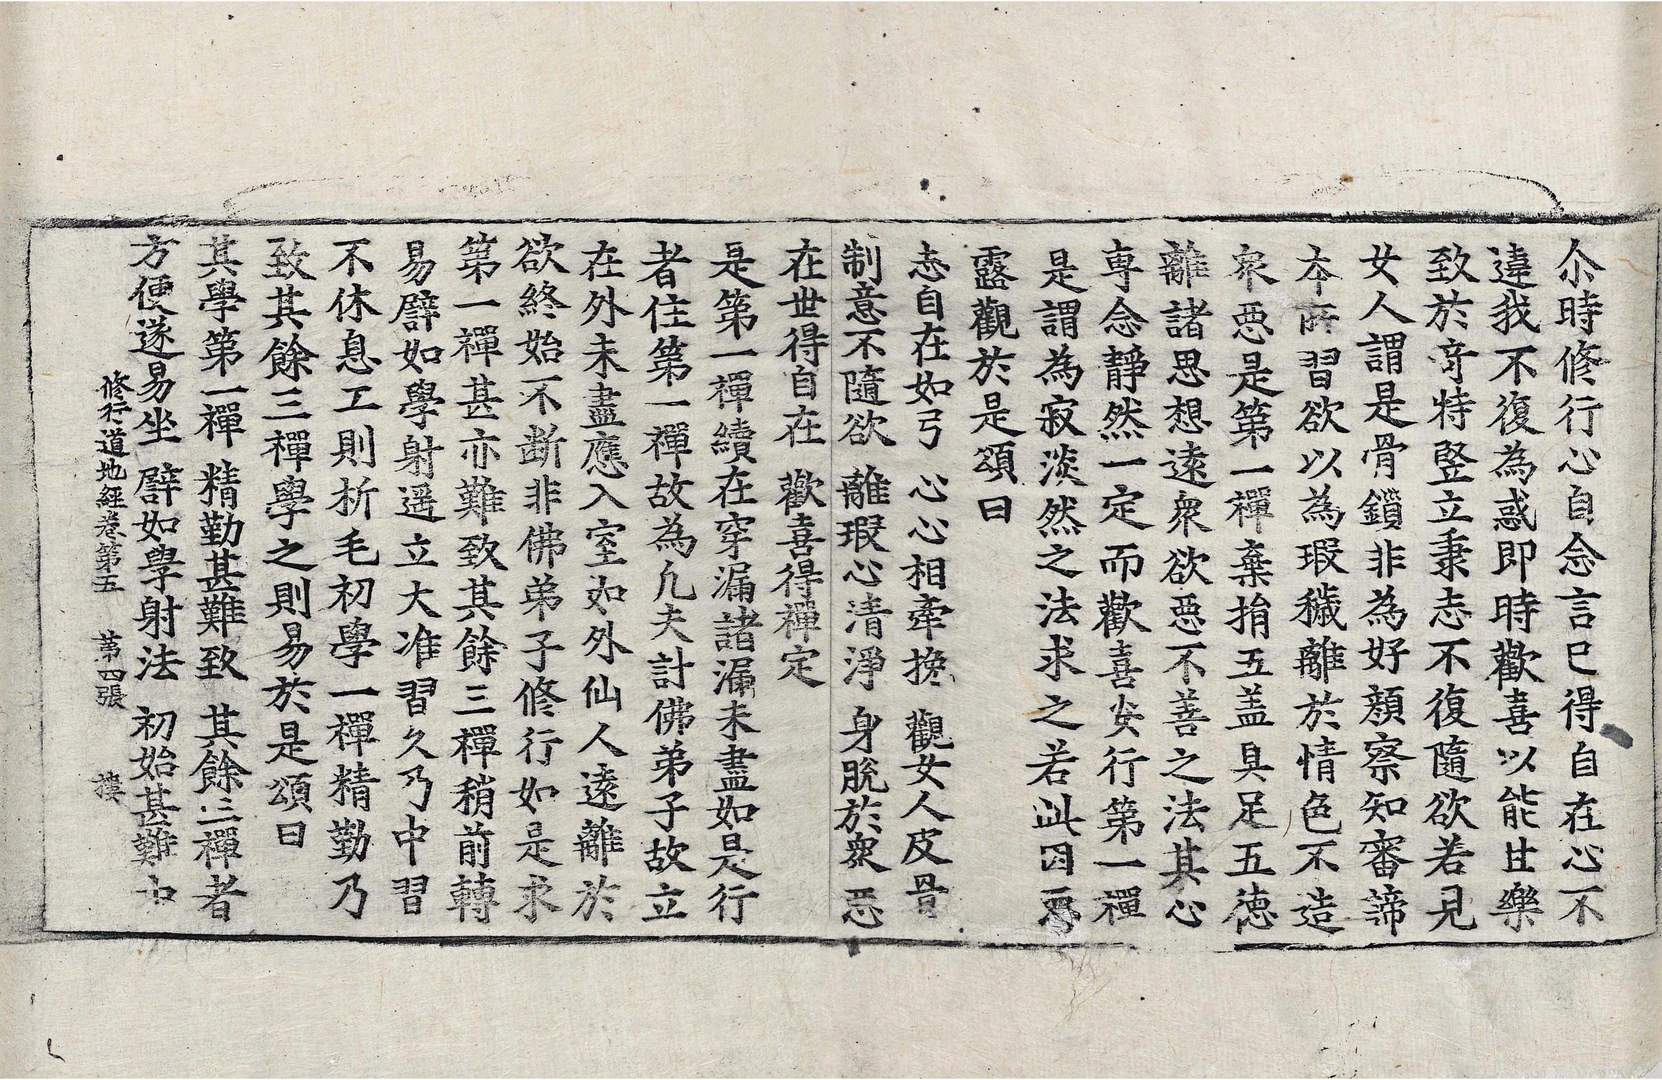 尒時修行心自念言已得自在心不
違我不復為惑即時歡喜以能甘樂
致於竒特竪立秉志不復隨欲若見
女人謂是骨鎖非為好顔察知審諦
夲所習欲以為瑕穢離於情色不造
衆惡是第一禪棄捐五盖具足五德
離諸思想遠衆欲惡不善之法其心
専念靜然一定而歡喜安行第一禪
是謂為寂淡然之法求之若此因惡
露觀於是頌曰
志自在如弓 心心相牽挽 觀女人皮骨
制意不隨欲 離瑕心清淨 身脫於衆惡
在世得自在 歡喜得禪定
是第一禪續在穿漏諸漏未盡如是行
者住第一禪故為凡夫計佛弟子故立
在外未盡應入室如外仙人遠離於
欲終始不断非佛弟子修行如是求
第一禪甚亦難致其餘三禪稍前轉
易譬如學射遥立大准習久乃中習
不休息工則析毛初學一禪精勤乃
致其餘三禪學之則易於是頌曰
其學第一禪 精勤甚難致 其餘三禪者
方便遂易坐 譬如學射法 初始甚難中
修行道地經卷第五 第四張 樓